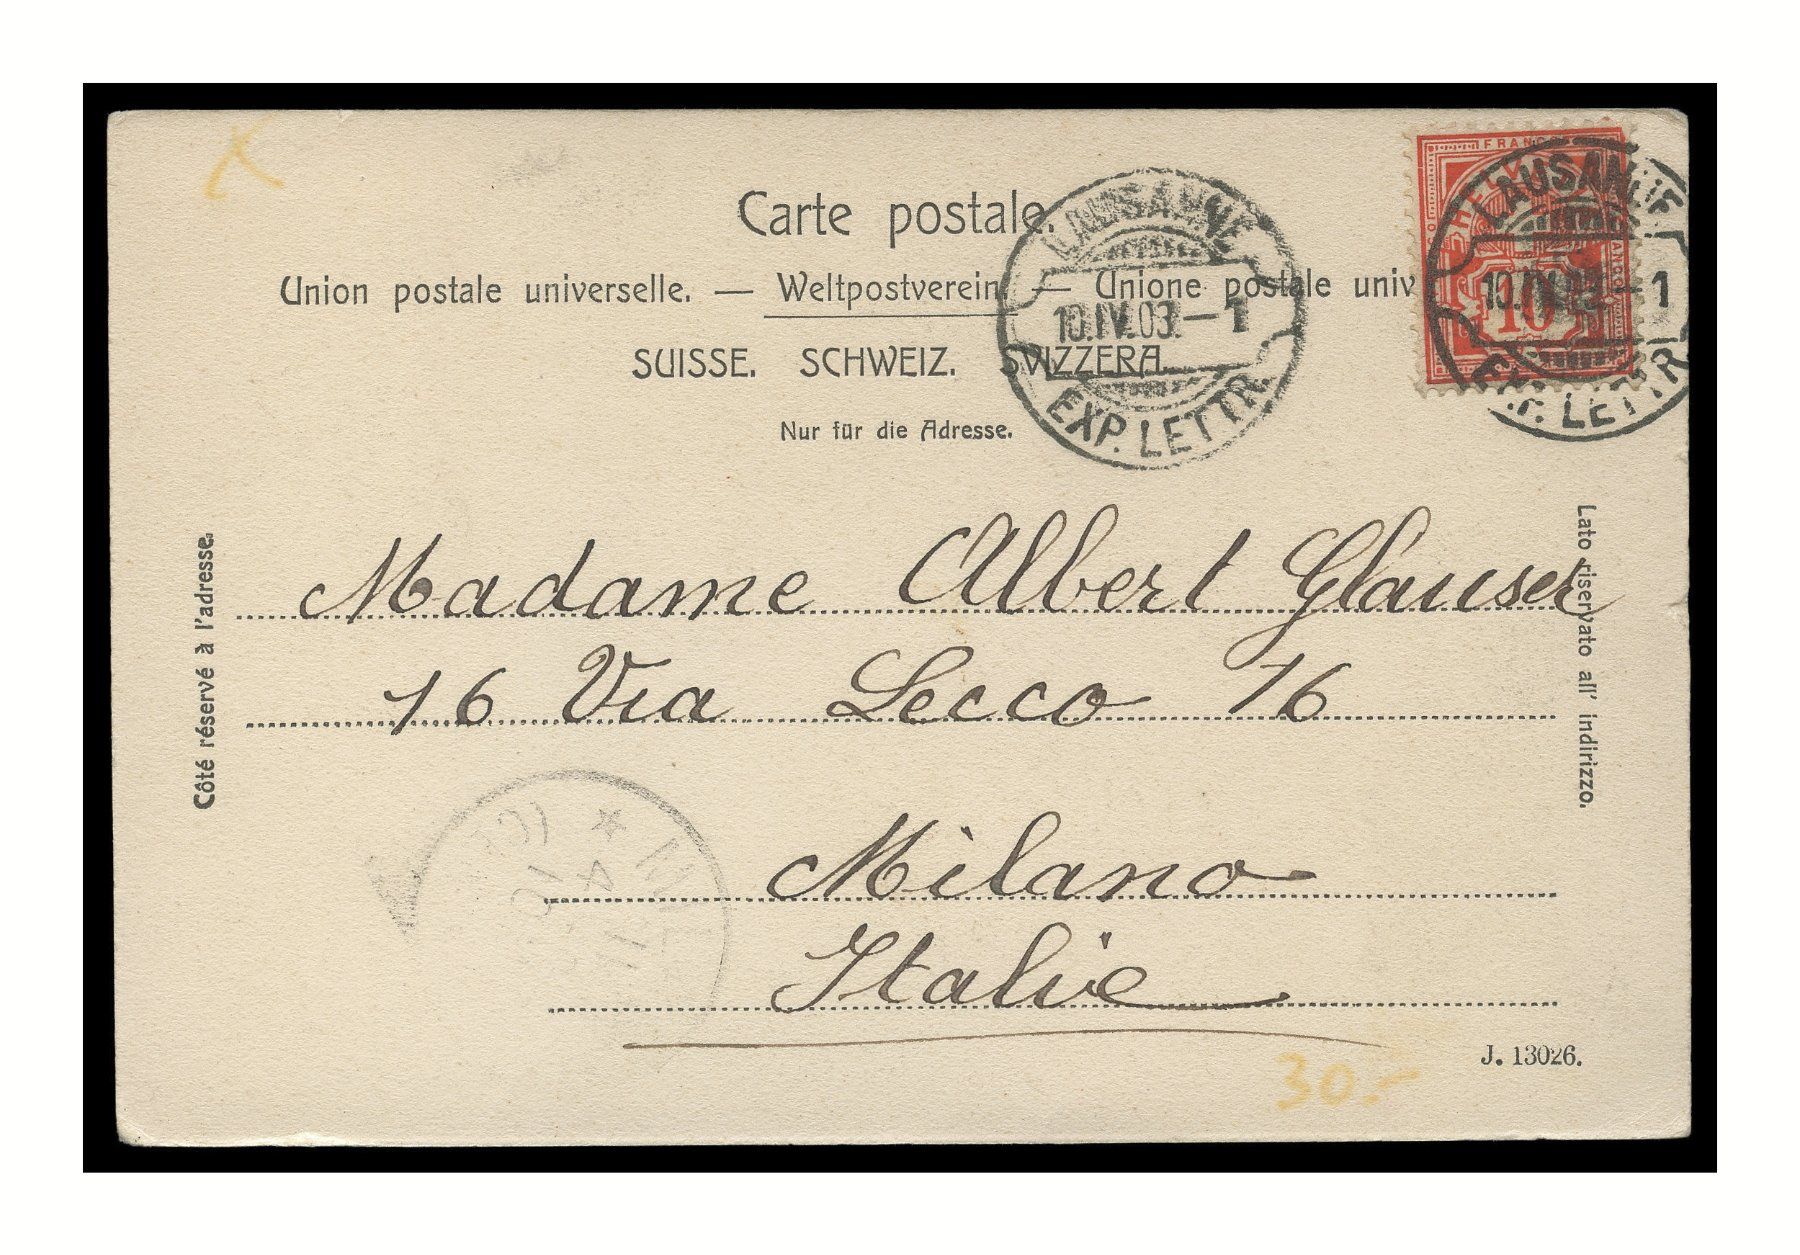 Carte postale.
Union postale universelle. — Weltpostverein. — Unione postale univ
SUISSE. SCHWEIZ. SVIZZERA.
Nur für die Adresse.
LAUSANNE
10.IV.03.—1
EXP. LETTR.
FRANCO
HELVETIA
10
LAUSANNE
10.IV.03—1
EXP. LETTR.
Côté réservé à l'adresse.
Lato riservato all' indirizzo.
Madame Albert Glauser
16 Via Lecco 16
Milano
Italie
J. 13026.
30.-